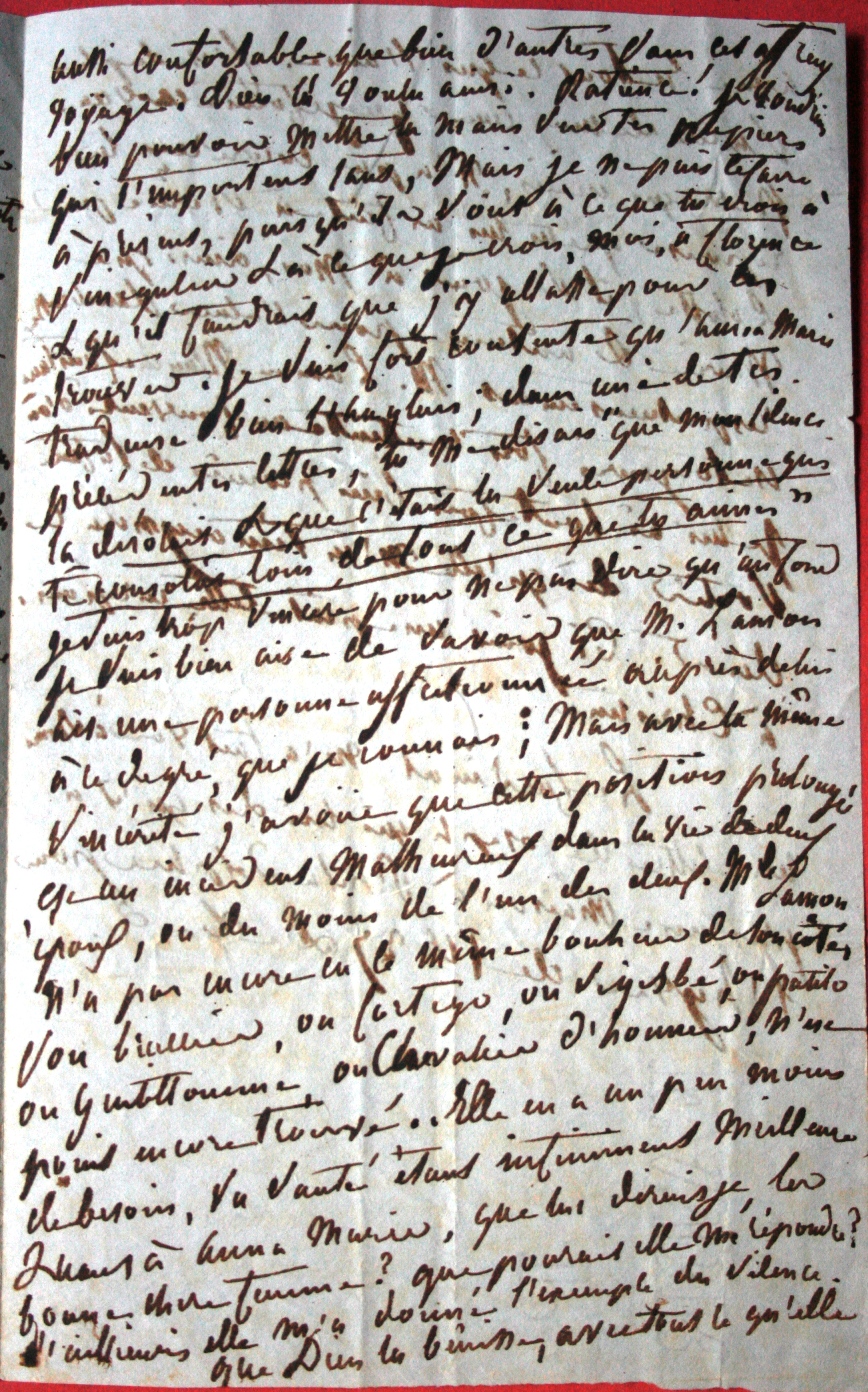 aussi confortable que bien d'autres dans cet affreux
voyage. Dieu l'a voulu ainsi. Patience! je voudrais
bien pouvoir mettre la main sur tes papiers
qui t'importent tant, Mais je ne puis le faire
à présent, puisqu'ils sont à ce que tu crois à
& à ce que je crois, moi, à Florence
& qu'il faudrait que j'y allasse pour les
trouver. Je suis fort contente qu'Anna Maria
traduise bien l'anglais; dans une de tes
précédentes lettres, tu me disais "que mon silence
la désolait & que c'était la seule personne qui
te consolât loin de tout ce que tu aimes"
Je suis trop sincère pour ne pas dire qu'au fond
je suis bien aise de savoir que M. Lamon
ait une personne affectionnée auprès de lui
à ce degré, que je connais; Mais avec la même
sincérité j'avoue que cette position prolongée
est un incident malheureux dans la vie de deux
époux, ou du moins de l'un des deux. Mde Lamon
n'a pas encore eu le même bonheur de son côté,
son bracciere, ou , ou sigisbé, ou patito
ou , ou Chevalier d'honneur, n'est
point encore trouvé. Elle en a un peu moins
de besoin, sa santé étant infiniment meilleure
Quant à Anna Maria, que lui dirais-je, la
bonne chère femme? que pourrait elle me répondre?
d'ailleurs elle m'a donné l'exemple du silence.
que Dieu la bénisse, avec tout ce qu'elle